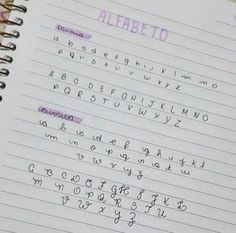 ALFABETO
a b c d e f g h i j k l m n o
p q r s t u v w x y z
A B C D E F G H I J K L M N O
P Q R S T U V W X Y Z
cursiva
a b c d e f g h i j k l
m n o p q r s t u
v w x y z
A B C D E F G H I J K L
M N O P Q R S T U
V W X Y Z